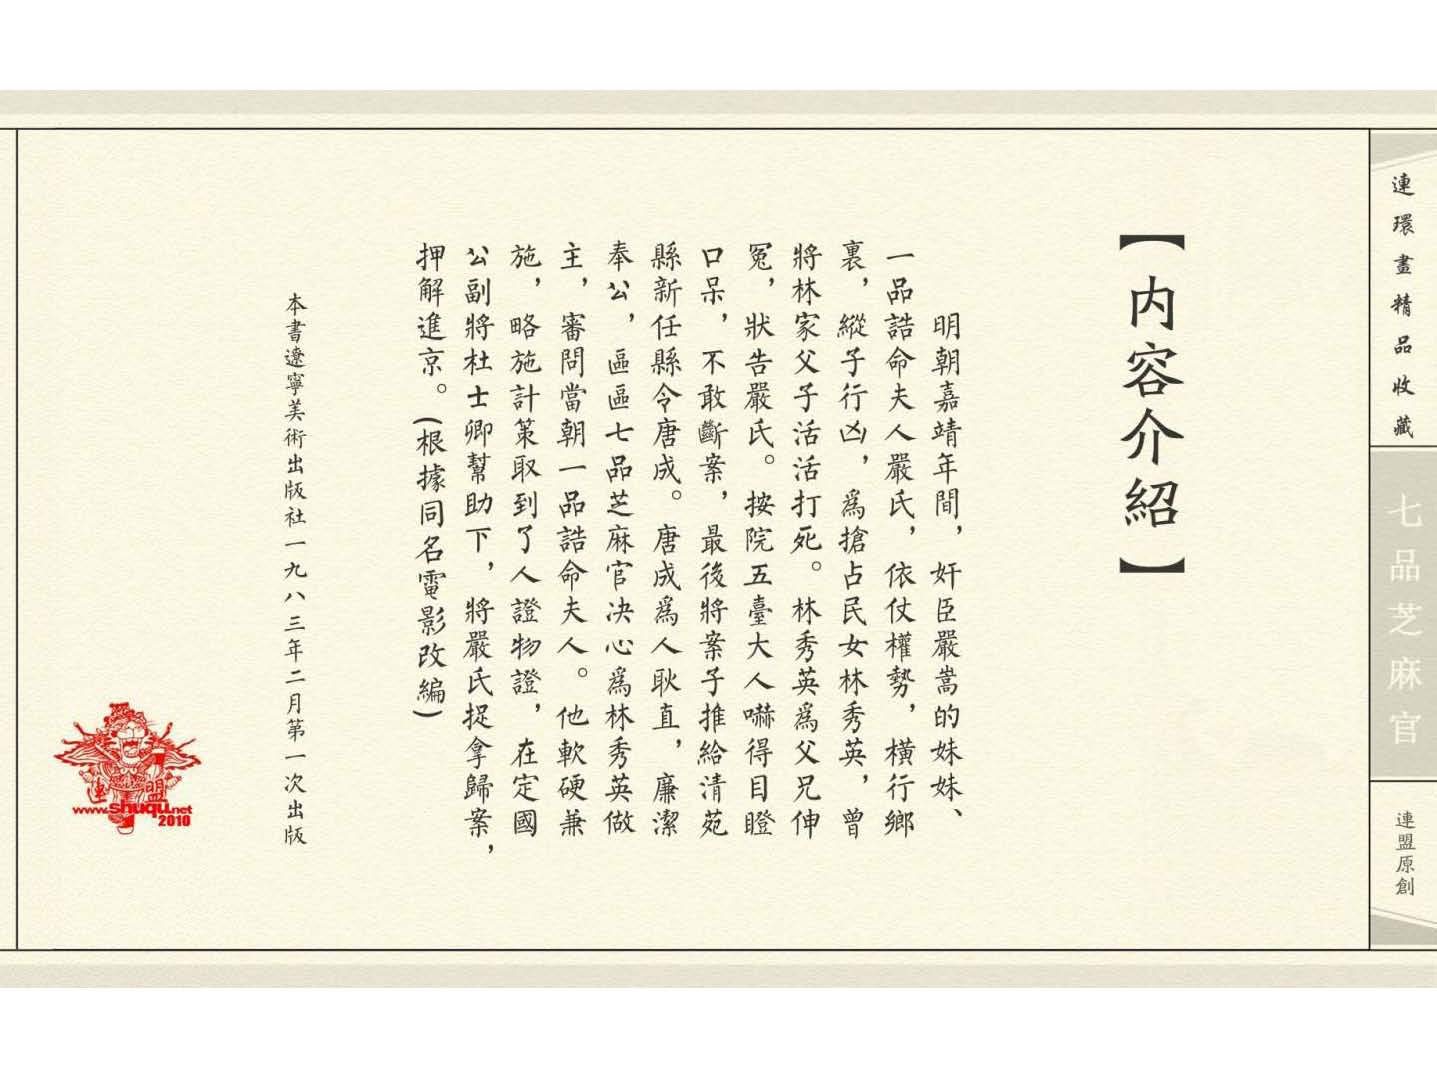 連環畫精品收藏
七品芝麻官
連盟原創
【内容介紹】
明朝嘉靖年間，奸臣嚴嵩的妹妹、
一品誥命夫人嚴氏，依仗權勢，橫行鄉
裏，縱子行凶，爲搶占民女林秀英，曾
將林家父子活活打死。林秀英爲父兄伸
冤，狀告嚴氏。按院五臺大人嚇得目瞪
口呆，不敢斷案，最後將案子推給清苑
縣新任縣令唐成。唐成爲人耿直，廉潔
奉公，區區七品芝麻官决心爲林秀英做
主，審問當朝一品誥命夫人。他軟硬兼
施，略施計策取到了人證物證，在定國
公副將杜士卿幫助下，將嚴氏捉拿歸案，
押解進京。(根據同名電影改編)
本書遼寧美術出版社一九八三年二月第一次出版
連盟
www.shuqu.net
2010